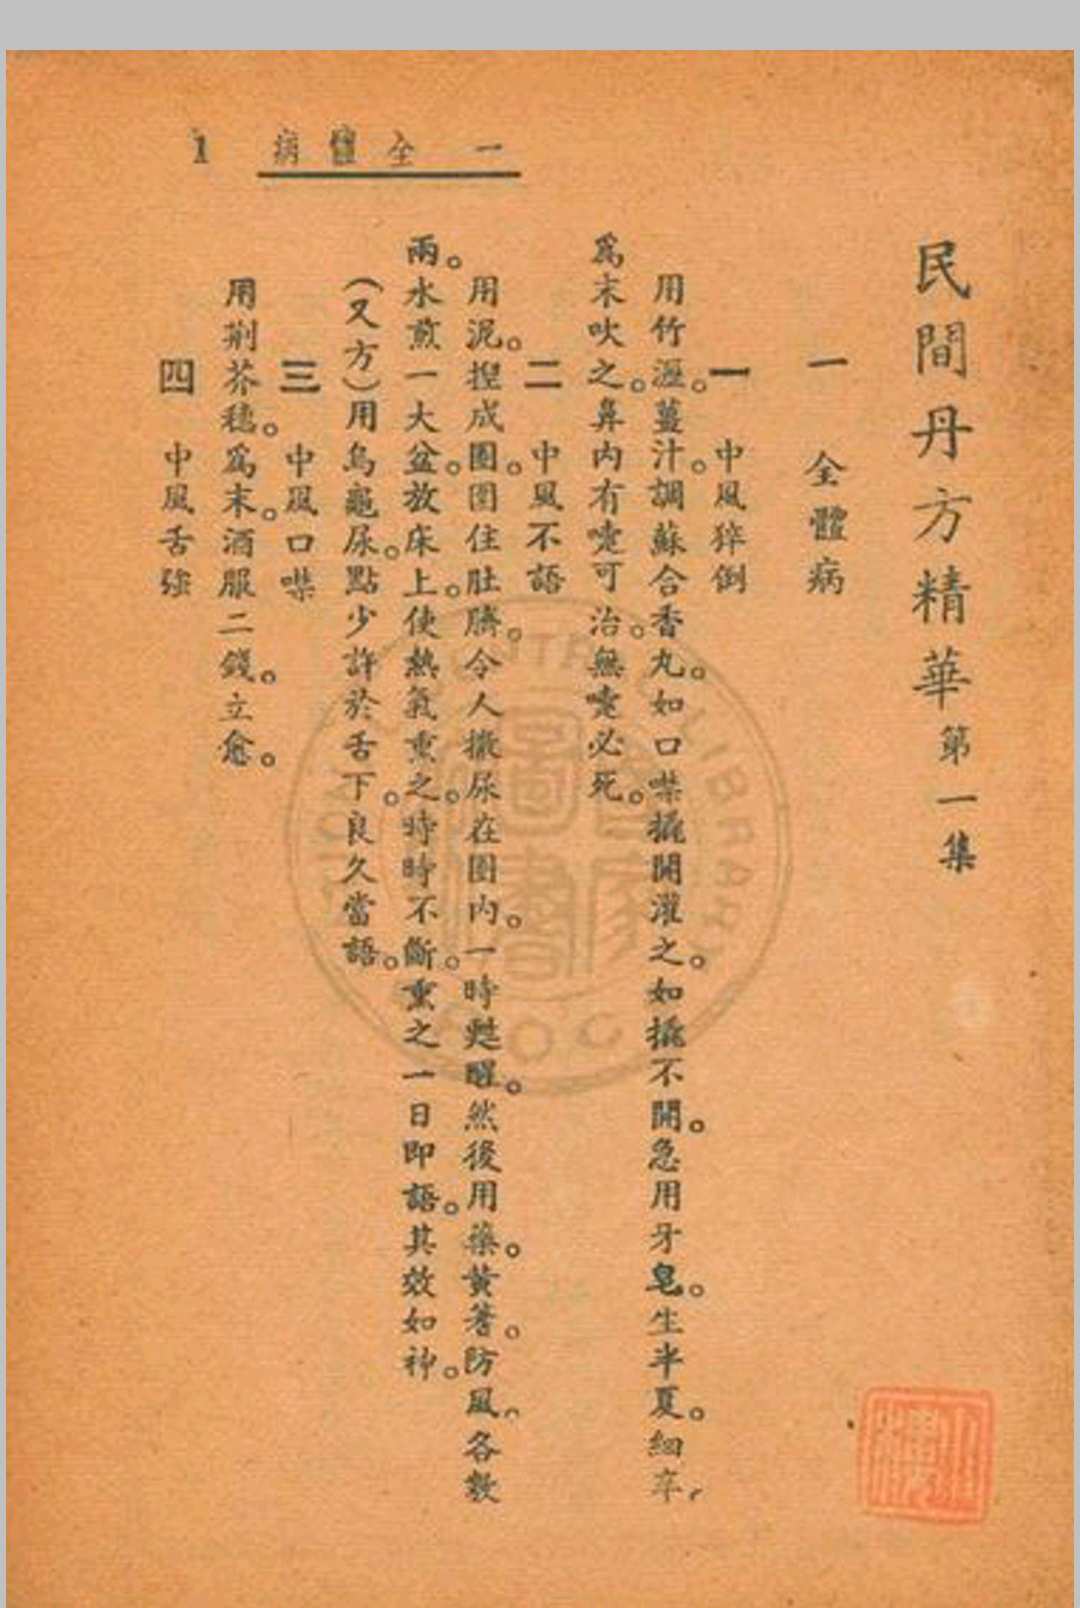 一 全體病 1
民間丹方精華 第一集
一 全體病
一 中風猝倒
用竹瀝。薑汁。調蘇合香丸。如口噤撬開灌之。如撬不開。急用牙皂。生半夏。細辛，
爲末吹之。鼻內有嚏可治。無嚏必死。
二 中風不語
用泥。揑成圈。圍住肚臍。令人撒尿在圈內。一時甦醒。然後用藥。黃蓍。防風。各數
兩。水煎一大盆。放床上。使熱氣熏之。時時不斷。熏之一日即語。其效如神。
（又方）用烏龜尿。點少許於舌下。良久當語。
三 中風口噤
用荆芥穗。爲末。酒服二錢。立愈。
四 中風舌強